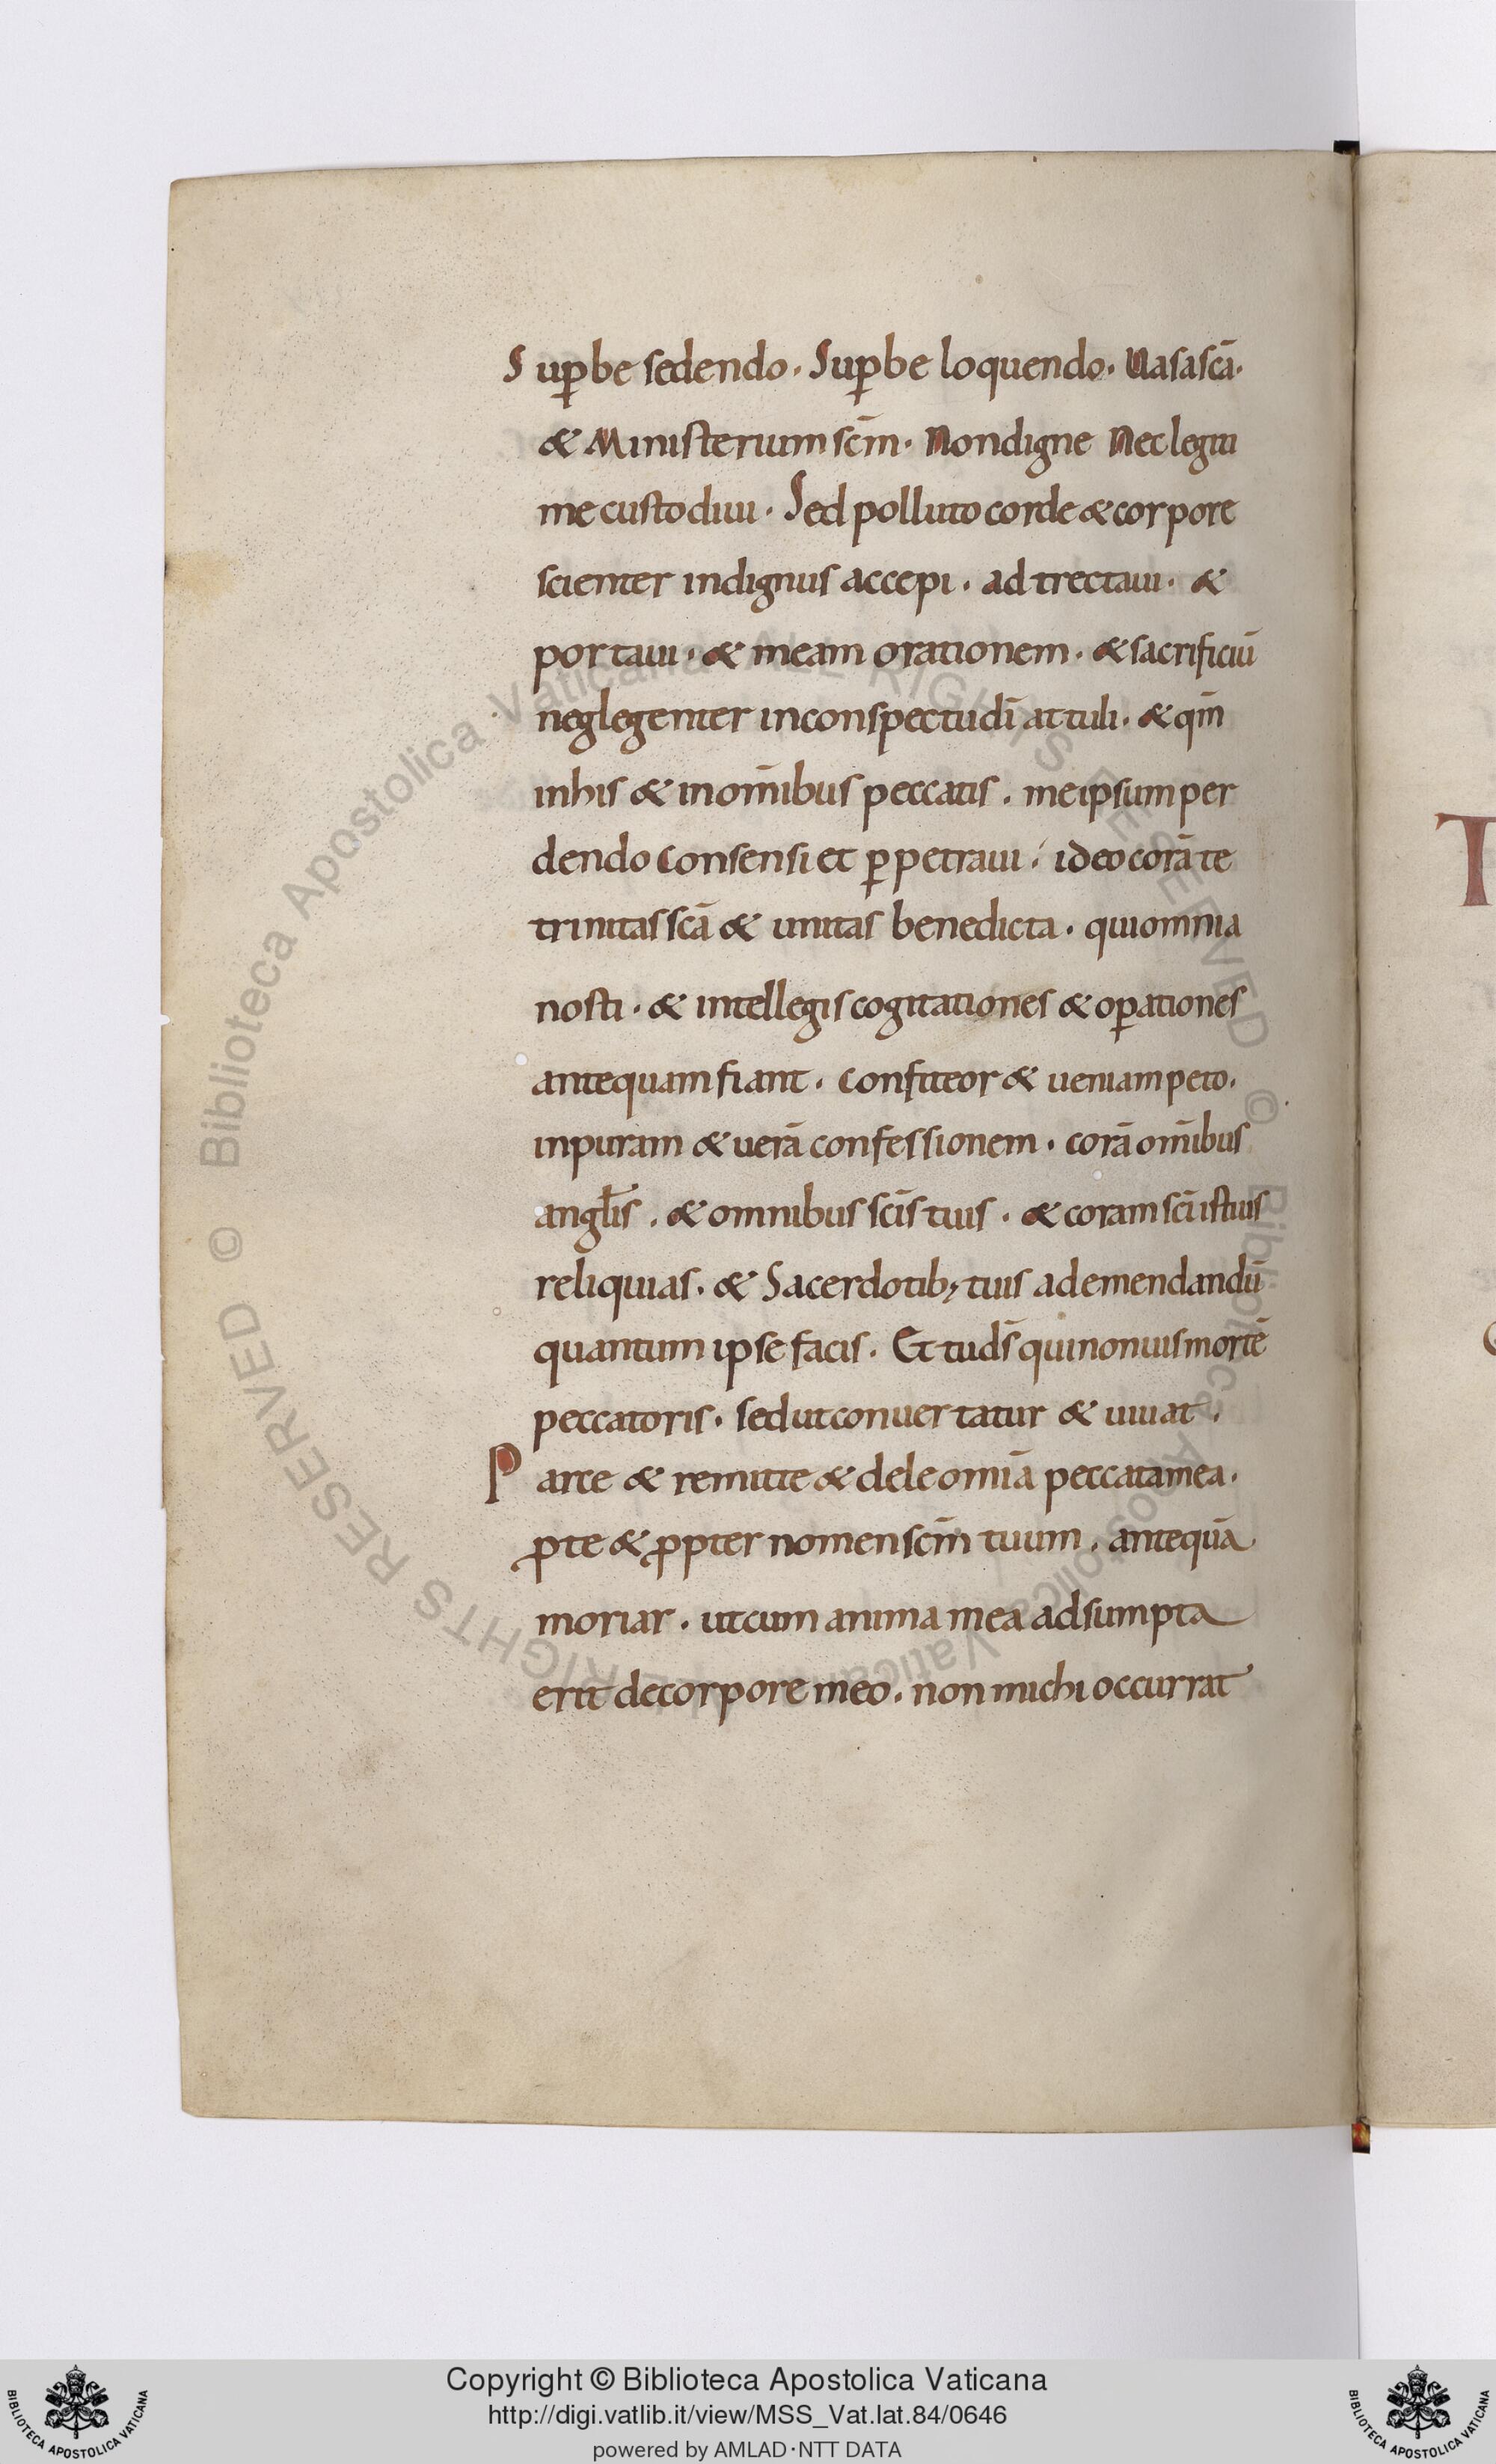 Sup̱be sedendo. Sup̱be loquendo. Uasa scā.
& Ministerium scm̄. Non digne Nec legiti
me custodiui. Sed polluto corde & corpore
scienter indignus accepi. ad trectaui. &
portaui. & meam orationem. & sacrificiū
neglegenter in conspectu dī attuli. & qm̄
in his & in om̄ibus peccatis. me ipsum per
dendo Consensi et p̱petraui. ideo corā te
trinitas scā & unitas benedicta. qui omnia
nosti. & intellegis cogitationes & op̱ationes
antequam fiant. Confiteor & ueniam peto.
in puram & uerā confessionem. corā om̄ibus
angl̄is. & omnibus scīs tuis. & coram scī istius
reliquias. & Sacerdotib; tuis ad emendandū
quantum ipse facis. Et tu ds̄ qui non uis mortē
peccatoris. sed ut conuertatur & uiuat.
Parce & remitte & dele om̄ia peccata mea.
ꝓ te & ꝓpter nomen scm̄ tuum. antequā
moriar. ut cum anima mea adsumpta
erit de corpore meo. non michi occurrat
T
Copyright © Biblioteca Apostolica Vaticana
http://digi.vatlib.it/view/MSS_Vat.lat.84/0646
powered by AMLAD·NTT DATA
BIBLIOTECA APOSTOLICA VATICANA
BIBLIOTECA APOSTOLICA VATICANA
© Biblioteca Apostolica Vaticana ALL RIGHTS RESERVED © Biblioteca Apostolica Vaticana ALL RIGHTS RESERVED